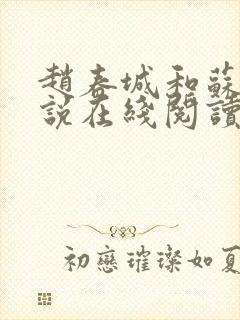 趙春城和蘇
說在綫閱讀
初戀璀璨如夏